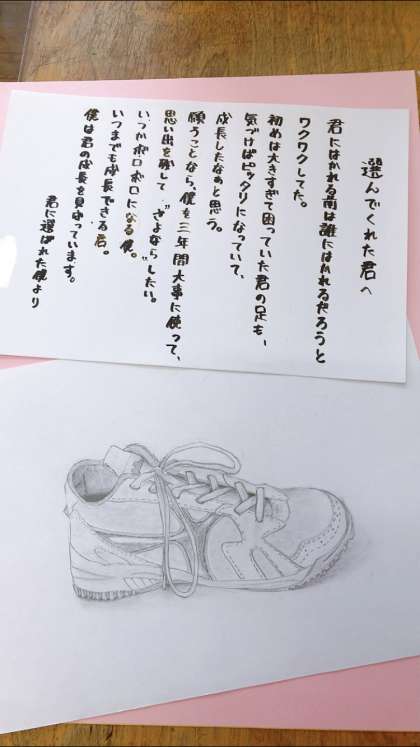 選んでくれた君へ
君にはかれる前は誰にはかれるだろうと
ワクワクしてた。
初めは大きすぎて困っていた君の足も、
気づけばピッタリになっていて、
成長したなぁと思う。
願うことなら、僕を三年間大事に使って、
思い出を残して〝さよならしたい。
いつかボロボロになる僕。〟
いつまでも成長できる君。
僕は君の成長を見守っています。
君に選ばれた僕より